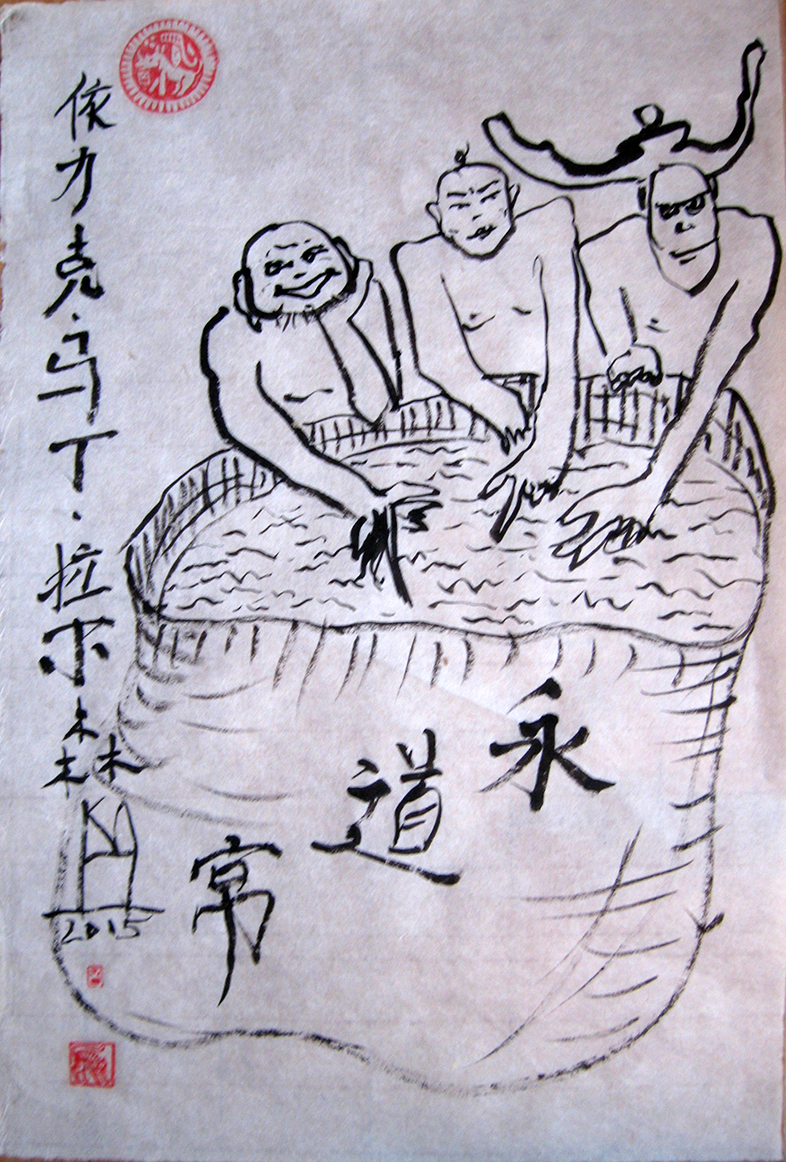 永道常
依力克·马丁·拉尔森
2015